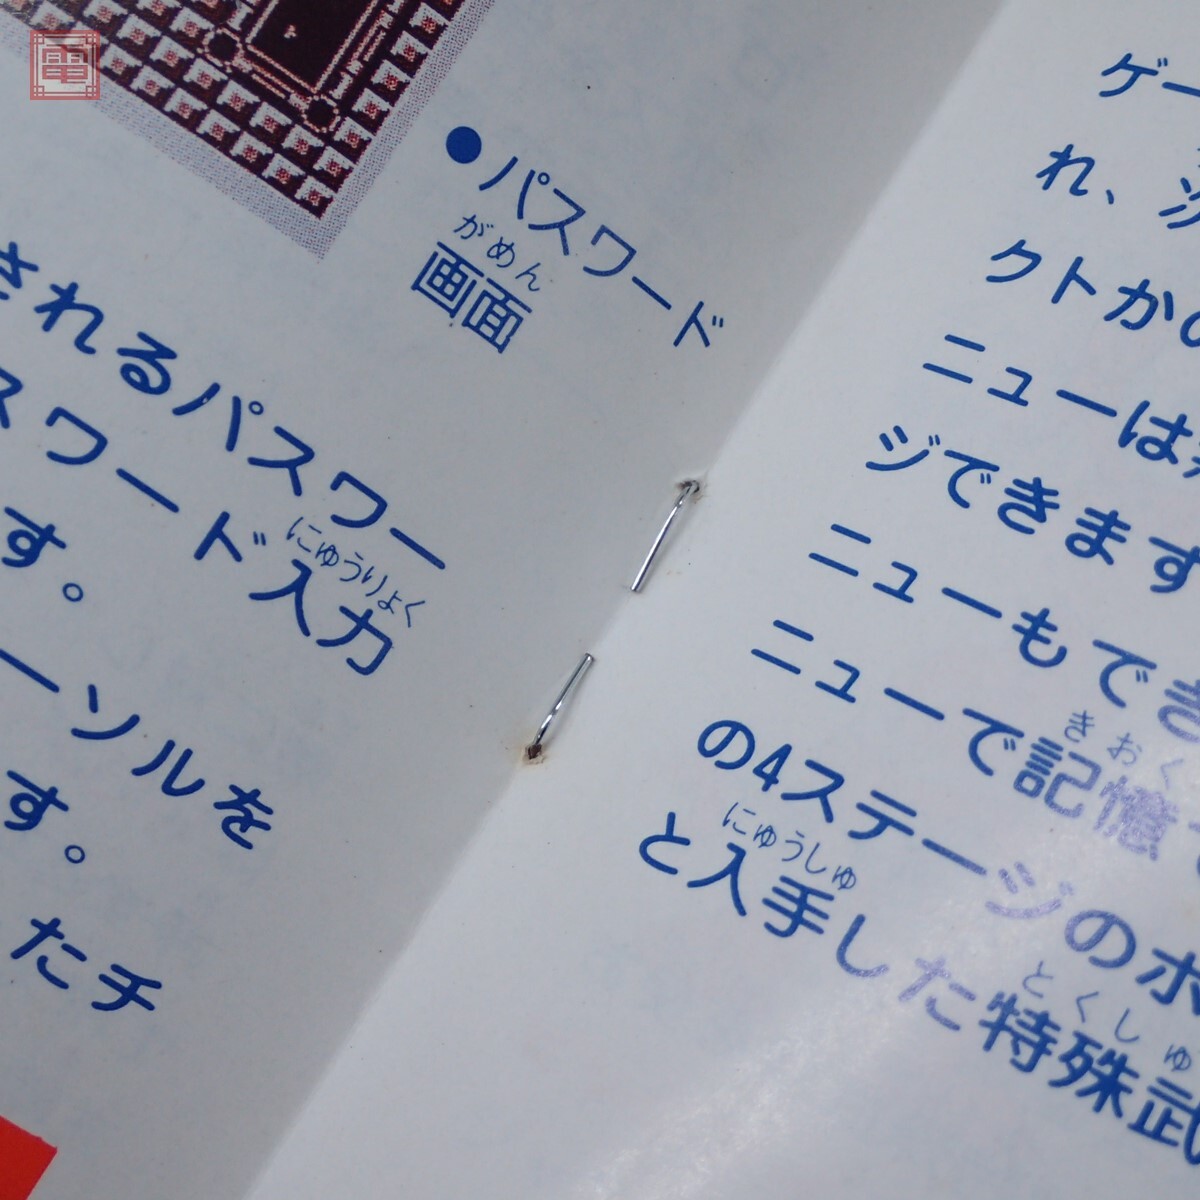 電
●パスワード
がめん
画面
されるパスワー
スワード入力
にゅうりょく
す。
ーソルを
す。
たチ
ゲー
れ、ジ
クトか
ニューは
ジできます
ニューもでき
ニューで記憶
きおく
の4ステージのボ
にゅうしゅ
と入手した特殊武
とくしゅ